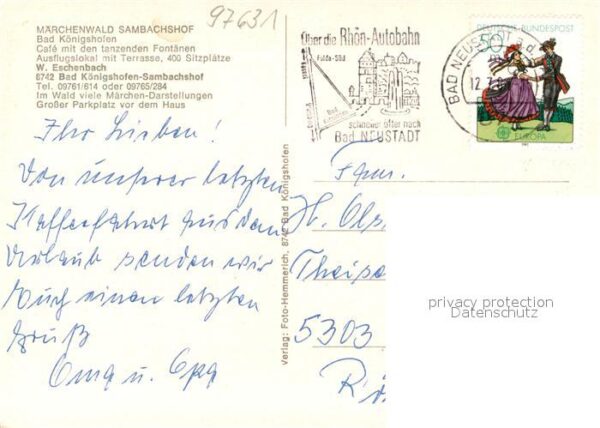 97631
MÄRCHENWALD SAMBACHSHOF
Bad Königshofen
Café mit den tanzenden Fontänen
Ausflugslokal mit Terrasse, 400 Sitzplätze
W. Eschenbach
8742 Bad Königshofen-Sambachshof
Tel. 09761/614 oder 09765/284
Im Wald viele Märchen-Darstellungen
Großer Parkplatz vor dem Haus
Ihr Lieben!
Von unserer letzten
Kaffeefahrt aus dem
Urlaub senden wir
Euch einen letzten
Gruß
Oma u. Opa
Verlag: Foto-Hemmerich, 8742 Bad Königshofen
Über die Rhön-Autobahn
Fulda-Süd
schneller öfter nach
Bad NEUSTADT
BAD NEUSTADT a.d.
12.7.
DEUTSCHE BUNDESPOST
50
EUROPA
Fam.
H. Ols
Theis
5303
privacy protection
Datenschutz